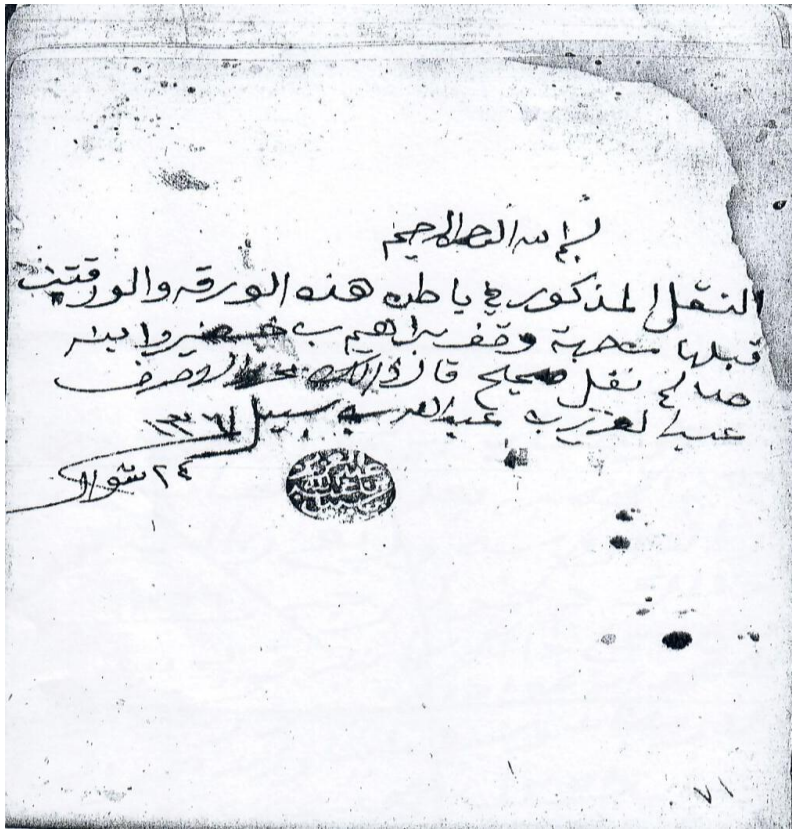 بسم الله الرحمن الرحيم
النقل المذكور في باطن هذه الورقه والورقتين
قبلها من جهة وقف براهيم بن خضير وابنه
صالح نقل صحيح قال ذالك
عبد العزيز بن عبد الله بن سبيل ١٣٦١
٢٤ شوال
٧١